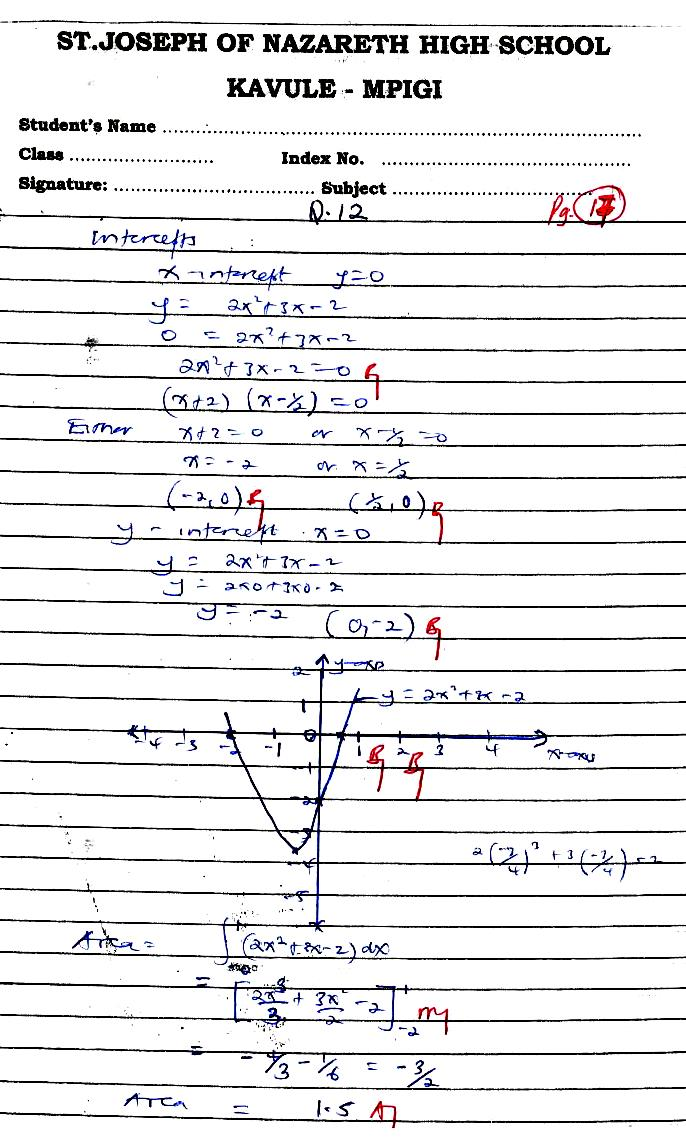 ST.JOSEPH OF NAZARETH HIGH SCHOOL
KAVULE - MPIGI
Student's Name ..............................
Class .............................. Index No. ..............................
Signature: .............................. Subject ..............................
Q.12 Pg.
Intercepts :
x-intercept y=0
y = 2x²+3x-2
0 = 2x²+3x-2
2x²+3x-2=0 B1
(x+2) (x-1/2) = 0
Either x+2=0 or x-1/2=0
x=-2 or x=1/2
(-2,0) B1 (1/2,0) B1
y-intercept x=0
y = 2x²+3x-2
y = 2x0+3x0-2
y = -2 (0,-2) B1
2 y-axis
1 y=2x²+3x-2
-4 -3 -2 -1 0 1 2 3 4 x-axis
-1 B1 B1
-2
-3
-4 2(-3/4)² + 3(-3/4) -2
-5
Area = ∫ (2x²+3x-2) dx
= [2x³/3 + 3x²/2 -2] -2 M1
= -4/3 - 1/6 = -3/2
Area = 1.5 A1